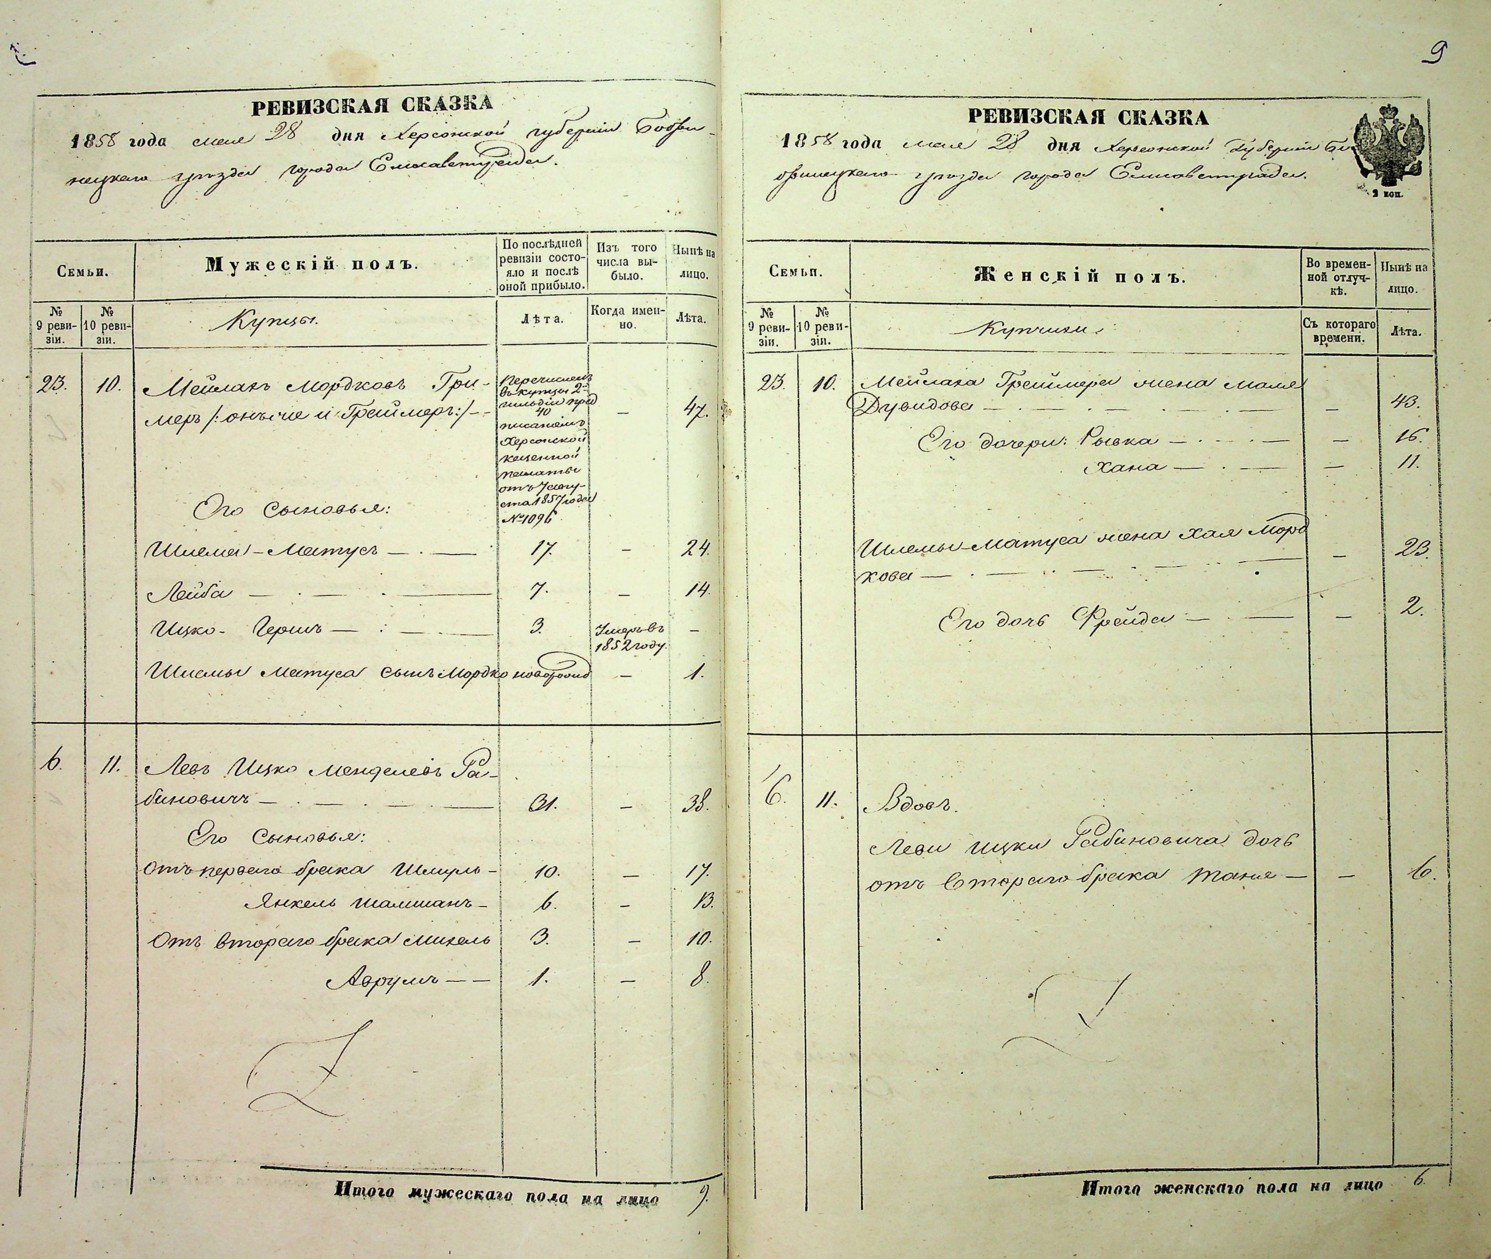 РЕВИЗСКАЯ СКАЗКА
1858 года мая 28 дня Херсонской губерніи Бобри-
нецкаго уѣзда города Елисаветграда.
Семьи.
Мужескій полъ.
По послѣдней
ревизіи состо-
яло и послѣ
оной прибыло.
Изъ того
числа вы-
было.
Нынѣ на
лицо.
№
9 реви-
зіи.
№
10 реви-
зіи.
Купцы.
Лѣта.
Когда имен-
но.
Лѣта.
23. 10. Мейлахъ Мордковъ Гри-
меръ /:онъ же и Греймеръ:/ — — 47.
Перечисленъ
въ купцы 2-
гильдіи пред
40
писаніемъ
Херсонской
казенной
палаты
отъ 7 авгу-
ста 1857 года
№ 1096
Его сыновья:
Шлема-Матусъ — 17. — 24.
Лейба — 7. — 14.
Ицко-Гершъ — 3. Умеръ въ —
1852 году.
Шлемы Матуса сынъ Мордко новорожд — 1.
6. 11. Левъ Ицко Менделевъ Ра-
биновичъ — 31. — 38.
Его сыновья:
Отъ перваго брака Шмуль — 10. — 17.
Янкель Шлиманъ — 6. — 13.
Отъ втораго брака Михель 3. — 10.
Аврумъ — — 1. — 8.
Итого мужескаго пола на лицо 9.
9
РЕВИЗСКАЯ СКАЗКА
1858 года мая 28 дня Херсонской Губерніи Бо-
бринецкаго уѣзда города Елисаветграда.
2 коп.
Семьи.
Женскій полъ.
Во времен-
ной отлуч-
кѣ.
Нынѣ на
лицо.
№
9 реви-
зіи.
№
10 реви-
зіи.
Купчихи
Съ котораго
времени.
Лѣта.
23. 10. Мейлаха Греймера жена Маля
Дувидова — — 43.
Его дочери: Рывка — — 16.
Хана — — 11.
Шлемы-Матуса жена Хая Морд
кова — — 23.
Его дочь Фрейда — — 2.
6. 11. Вдовъ.
Леви Ицки Рабиновича дочь
отъ втораго брака Таня — — 6.
Итого женскаго пола на лицо 6.